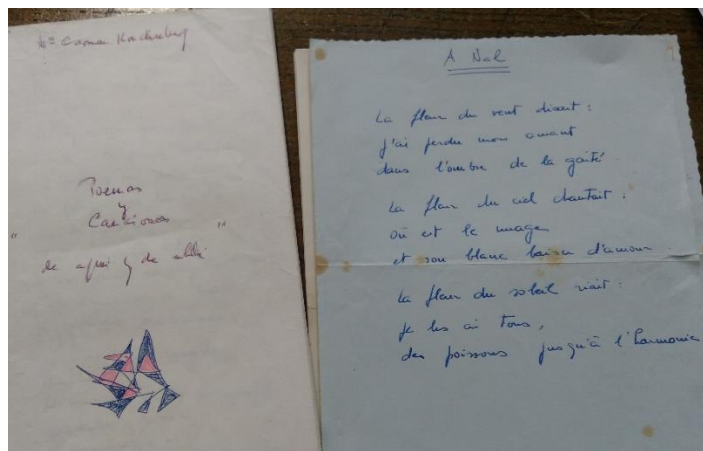 Mª Carmen Kruckenberg
Poemas
y
Canciones
" "
de aqui y de allá
A Nal
La fleur du vent disait :
j'ai perdu mon amant
dans l'ombre de la gaité.
La fleur du ciel chantait :
où est le nuage
et son blanc baiser d'amour.
La fleur du soleil riait :
je les ai tous,
des poissons jusqu'à l'Harmonie